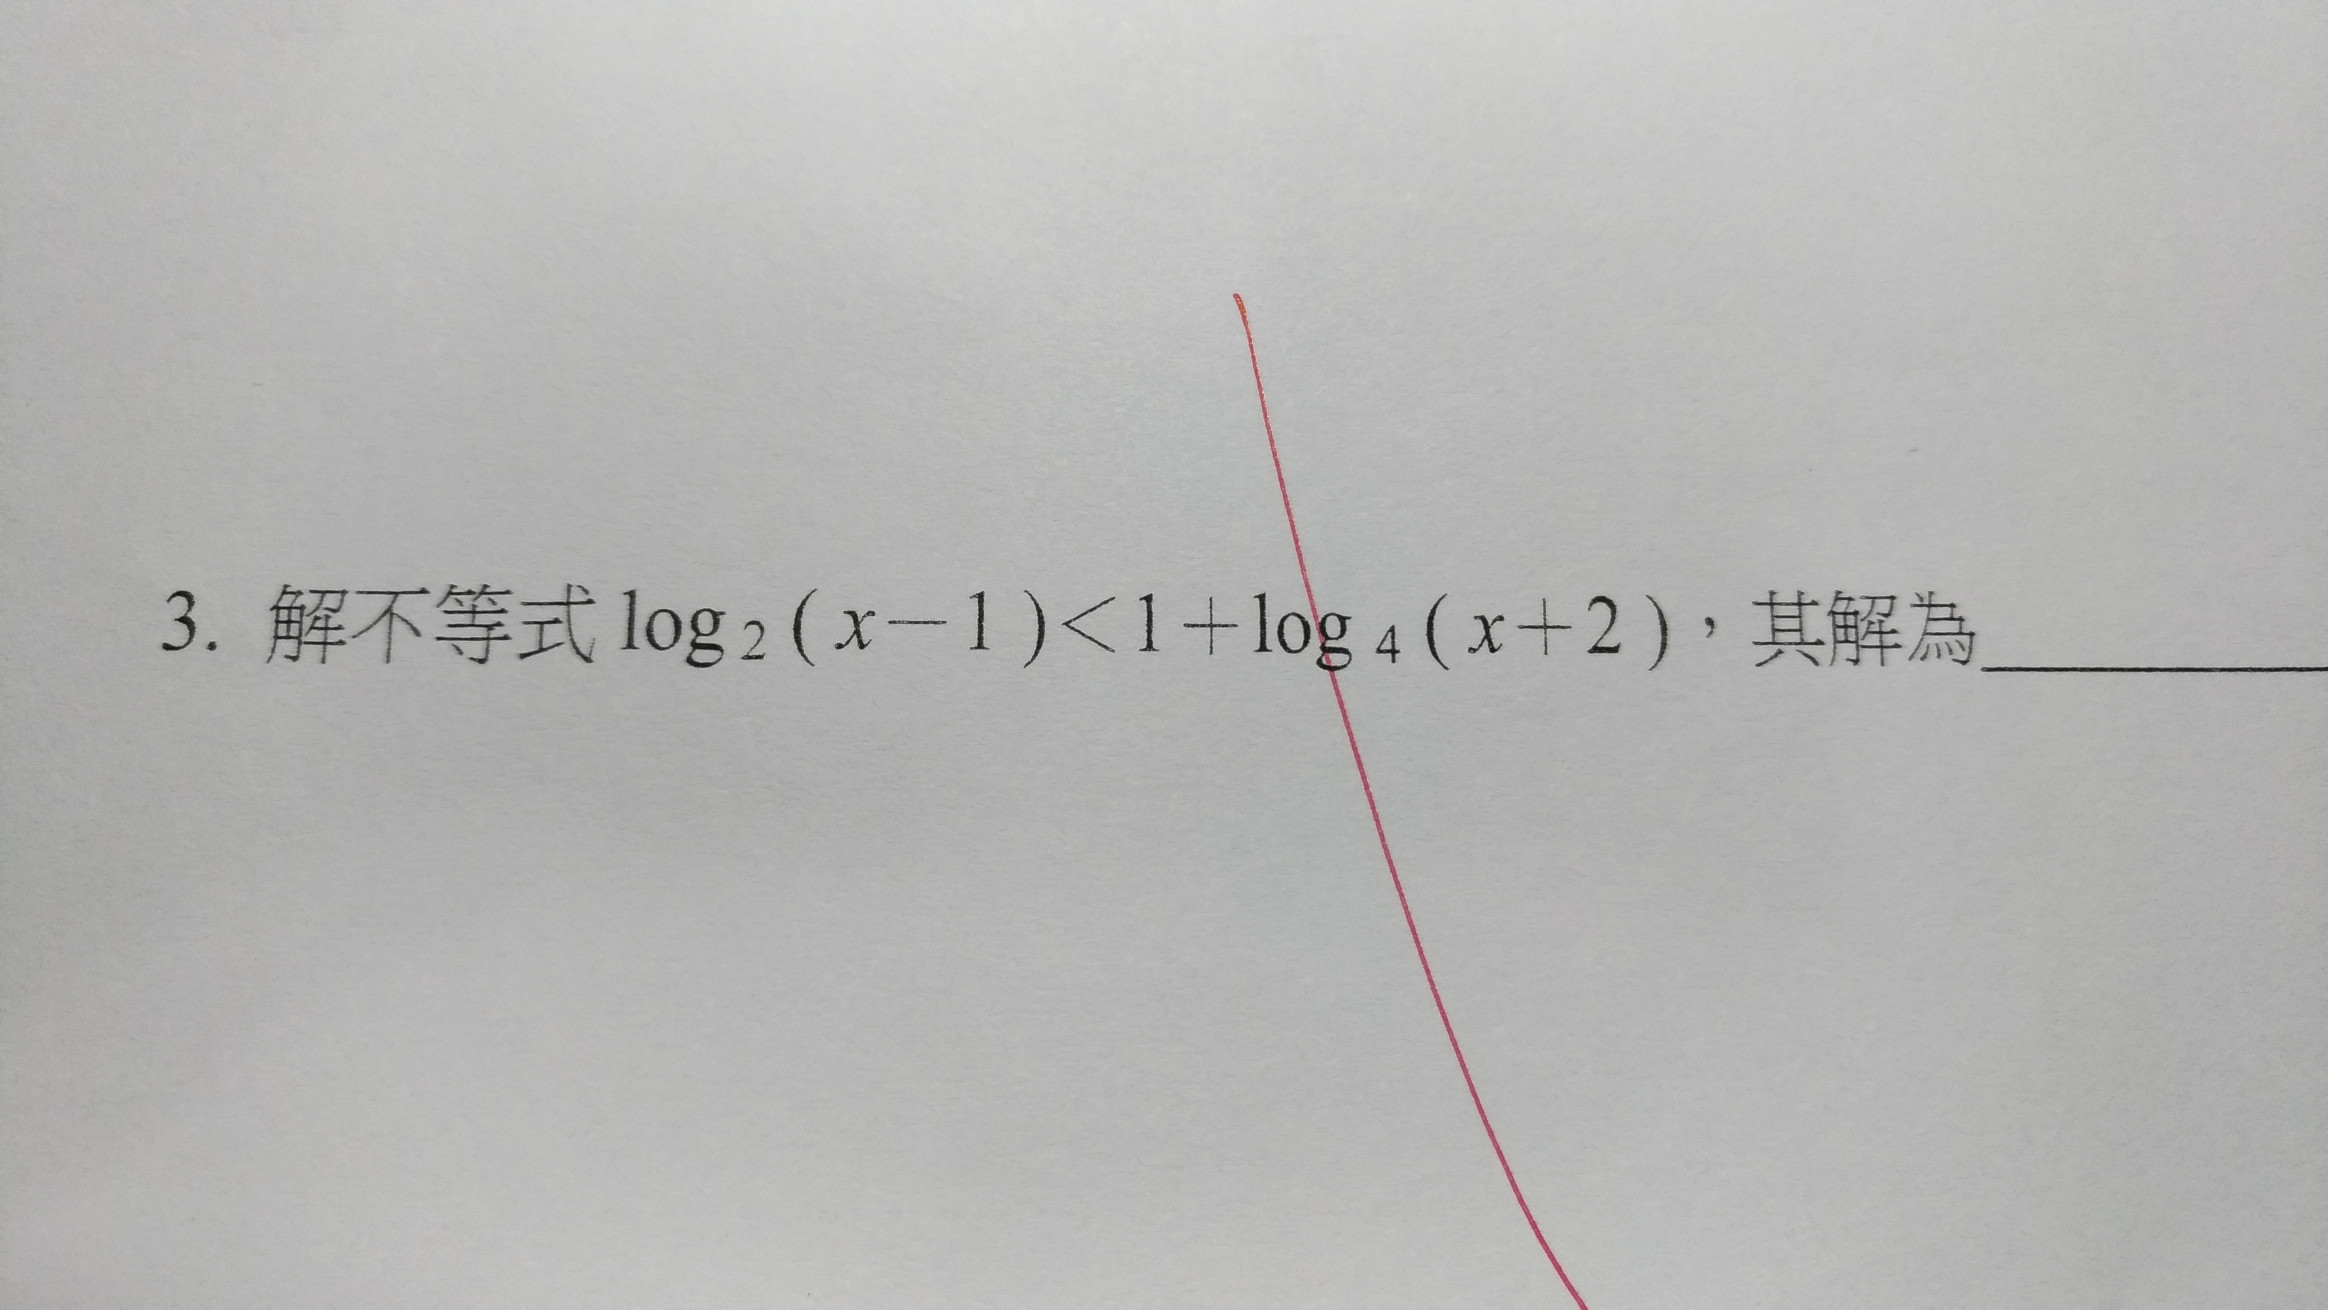 3. 解不等式 log₂(x－1)<1＋log₄(x＋2)，其解為________